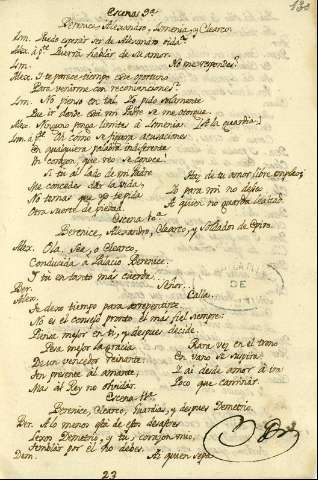 Escena 9ª
Berenice, Alexandro, Ismenia, y Clearco.
Ism. Puedo esperar ser de Alexandro oida?
Alex. á pte. Querrá hablar de su amor.
Ism. No me respondes?
Alex. Y te parece tiempo este oportuno
Para venirme con reconvenciones?
Ism. No pienso en tal. Lo pido solamente
Que ir donde está mi Padre se me otorgue.
Alex. Ninguno ponga limites á Ismenia. [á la guardia.]
Ism. á pte. Oh como se figura acusaciones
En qualquiera palabra indiferente
Un corazon, que reo se conoce!
Si tu al lado de mi Padre
Me concedes dar la vida,
No temas que yo te pida
Otra suerte de piedad.
Haz de tu amor libre empleo,
Lo para mi no desea
A quien no guarda lealtad.
Escena 10ª
Berenice, Alexandro, Clearco, y Soldados de Epiro.
Alex. Ola. Sea, o Clearco,
Conducida á Palacio Berenice.
Y tu en tanto mas cuerda...
Ber. Señor...
Alex. Calla.
Te dexo tiempo para arrepentirte.
No es el consejo pronto el mas fiel siempre:
Piensa mejor en ti, y despues decide.
Pesa mejor la gracia
De un vencedor reinante;
Ten presente al amante,
Mas al Rey no olvidar.
Rara vez en el trono
En vano se suspira
Y ai desde amor á ira
Poco que caminar.
Escena 11ª
Berenice, Clearco, Guardias, y despues Demetrio.
Ber. A lo menos está de estos desastres
Lexos Demetrio, y tu, corazon mio,
Temblar por el no debes.
Dem. Ai quien sepa
23